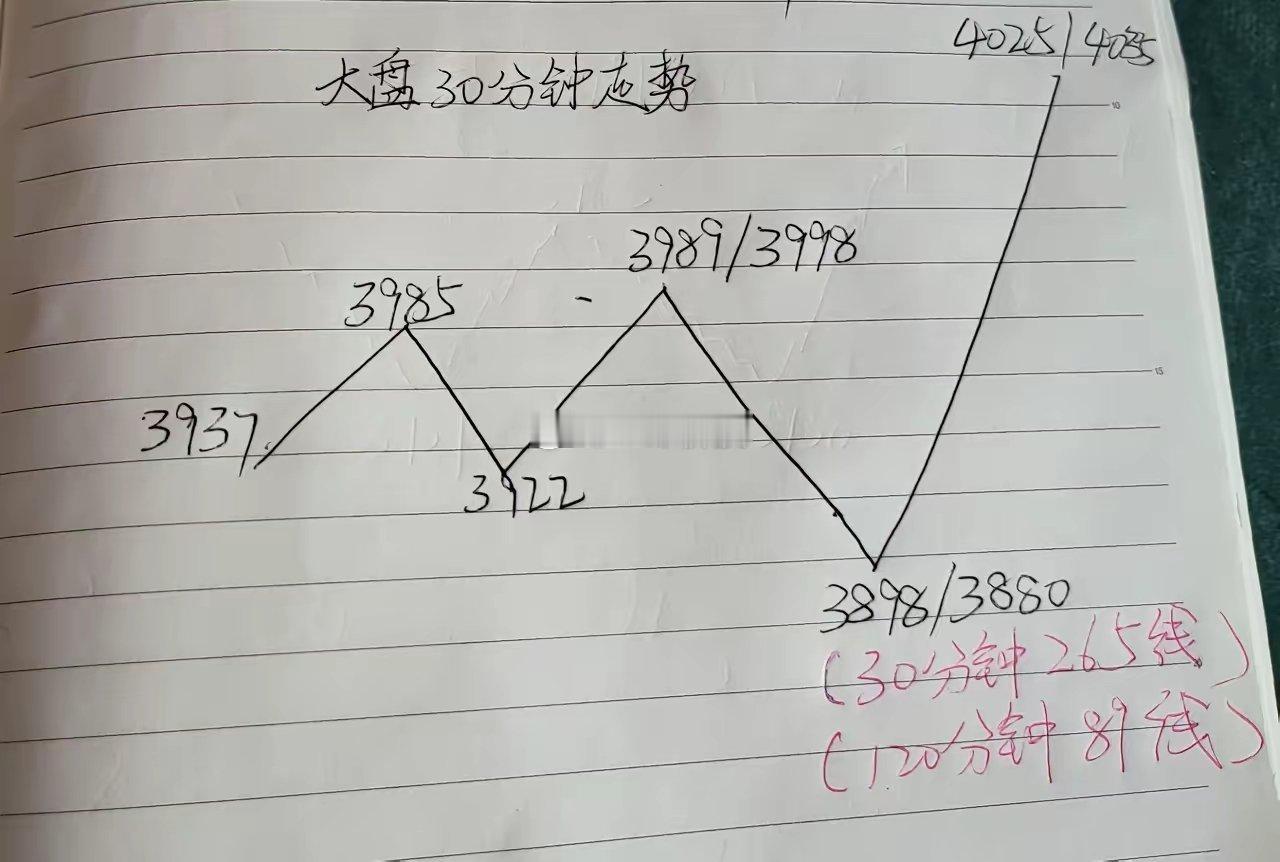 4025/4035
大盘30分钟走势
3989/3998
3985
3937
3922
3898/3880
(30分钟265线)
(120分钟89线)
10
15